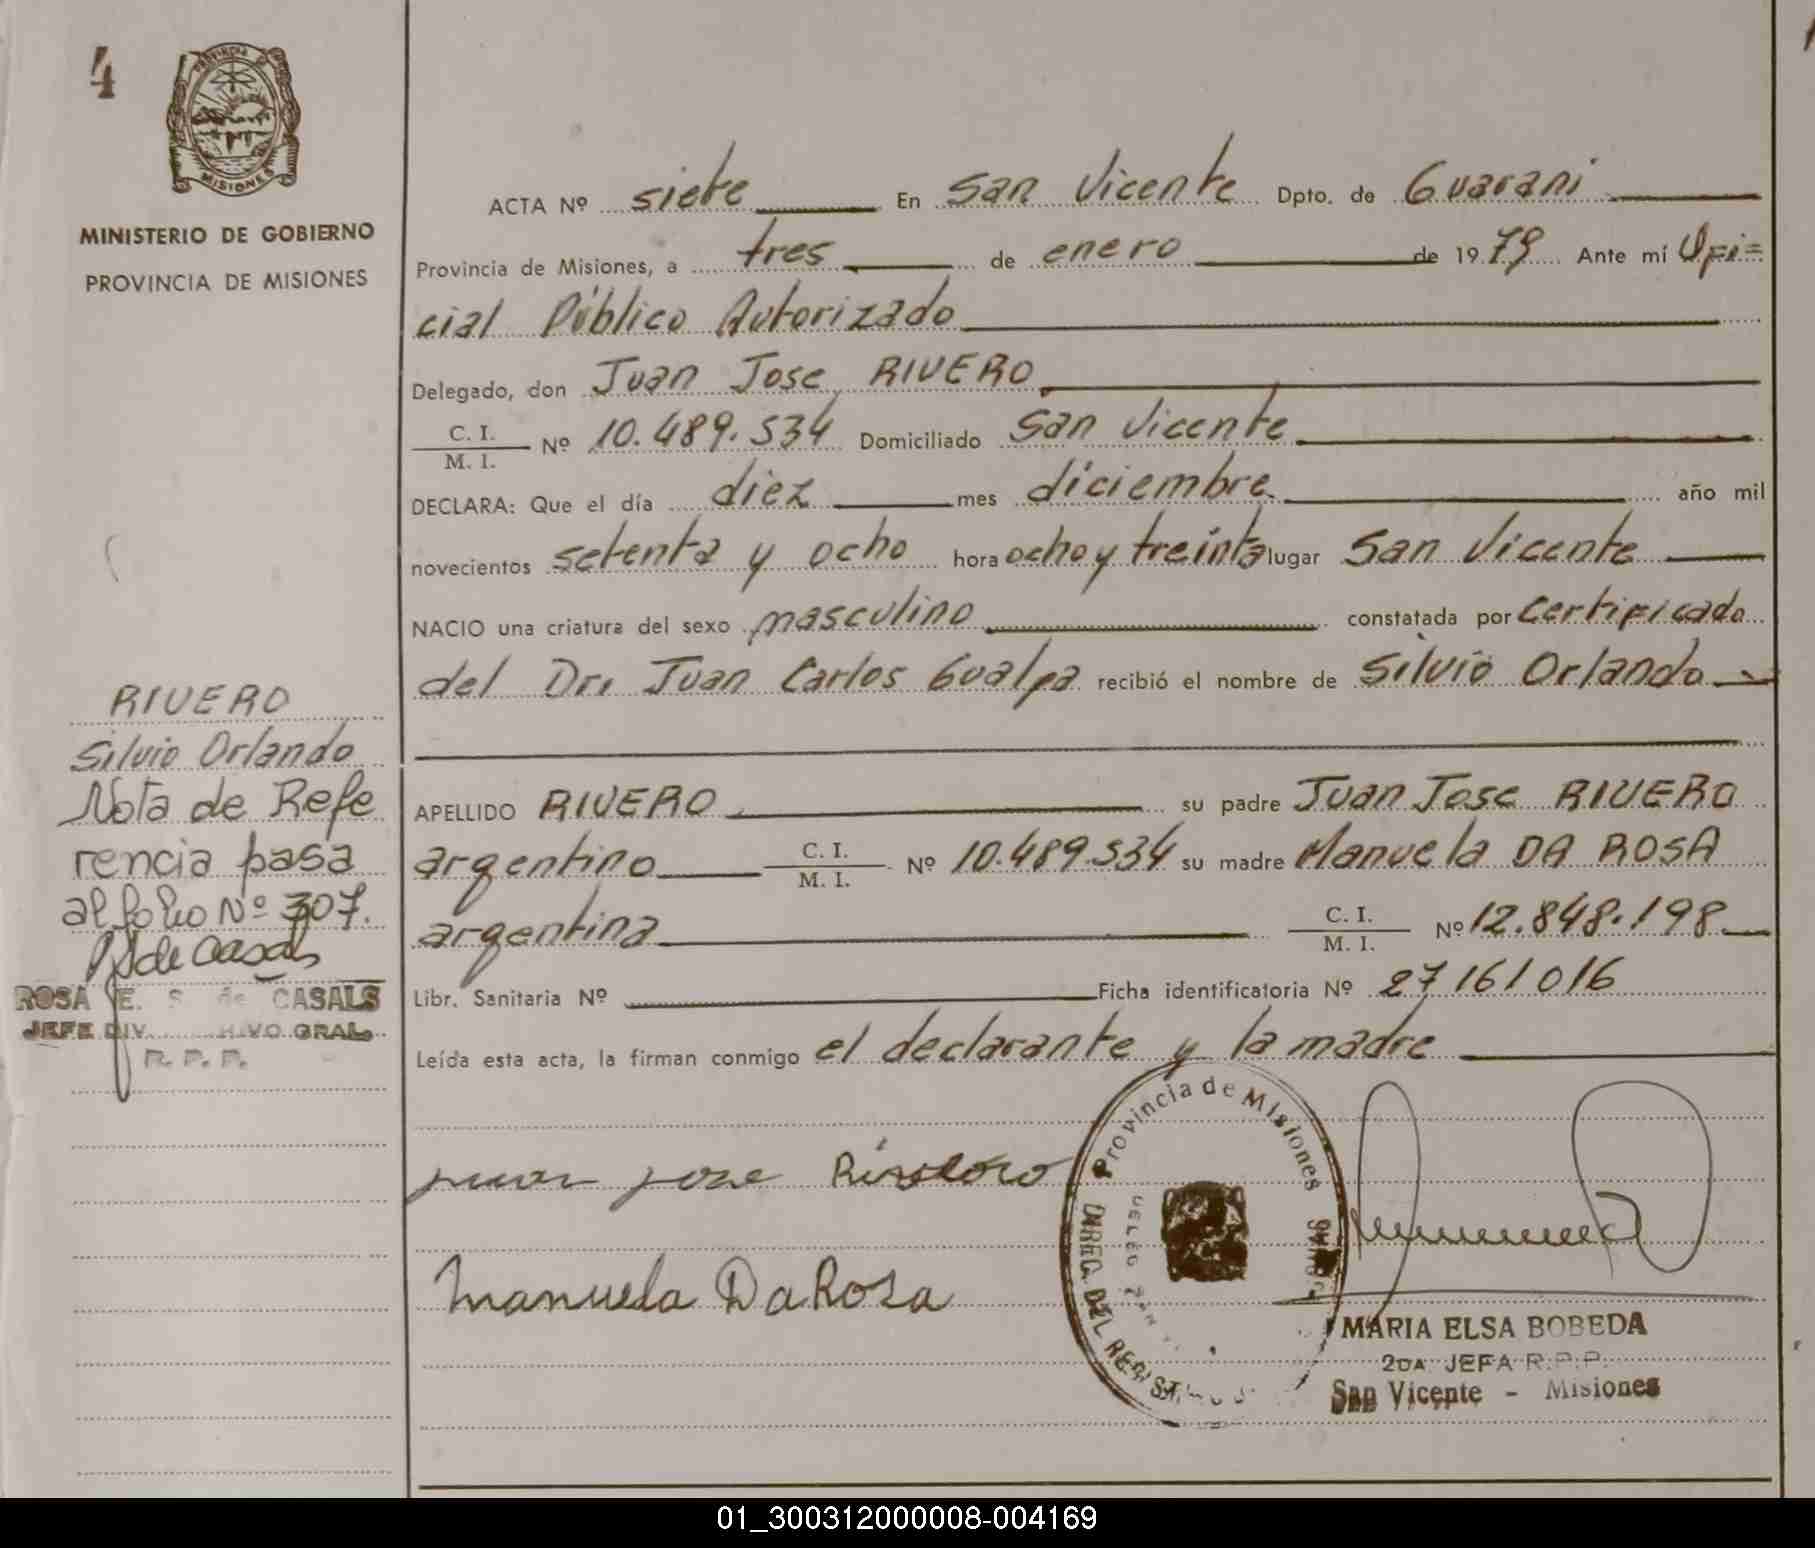 4
PROVINCIA DE
MISIONES
MINISTERIO DE GOBIERNO
PROVINCIA DE MISIONES
ACTA Nº siete En San Vicente Dpto. de Guarani
Provincia de Misiones, a tres de enero de 1979 Ante mí Ofi=
cial Público Autorizado
Delegado, don Juan Jose RIVERO
C. I.
M. I. Nº 10.489.534 Domiciliado San Vicente
DECLARA: Que el día diez mes diciembre año mil
novecientos setenta y ocho hora ocho y treinta lugar San Vicente
NACIO una criatura del sexo masculino constatada por Certificado
del Dr. Juan Carlos Gualpa recibió el nombre de Silvio Orlando
APELLIDO RIVERO su padre Juan Jose RIVERO
argentino C. I.
M. I. Nº 10.489.534 su madre Manuela DA ROSA
argentina C. I.
M. I. Nº 12.848.198
Libr. Sanitaria Nº Ficha identificatoria Nº 27161016
Leída esta acta, la firman conmigo el declarante y la madre
RIVERO
Silvio Orlando
Nota de Refe
rencia pasa
al folio Nº 307.
de Casals
ROSA E. S. de CASALS
JEFE DIV. GRAL.
R. P. P.
juan jose
Manuela Da Rosa
Provincia de Misiones
DIREG. DEL REGIST.
MARIA ELSA BOBEDA
2DA JEFA R.P.P.
San Vicente - Misiones
01_300312000008-004169